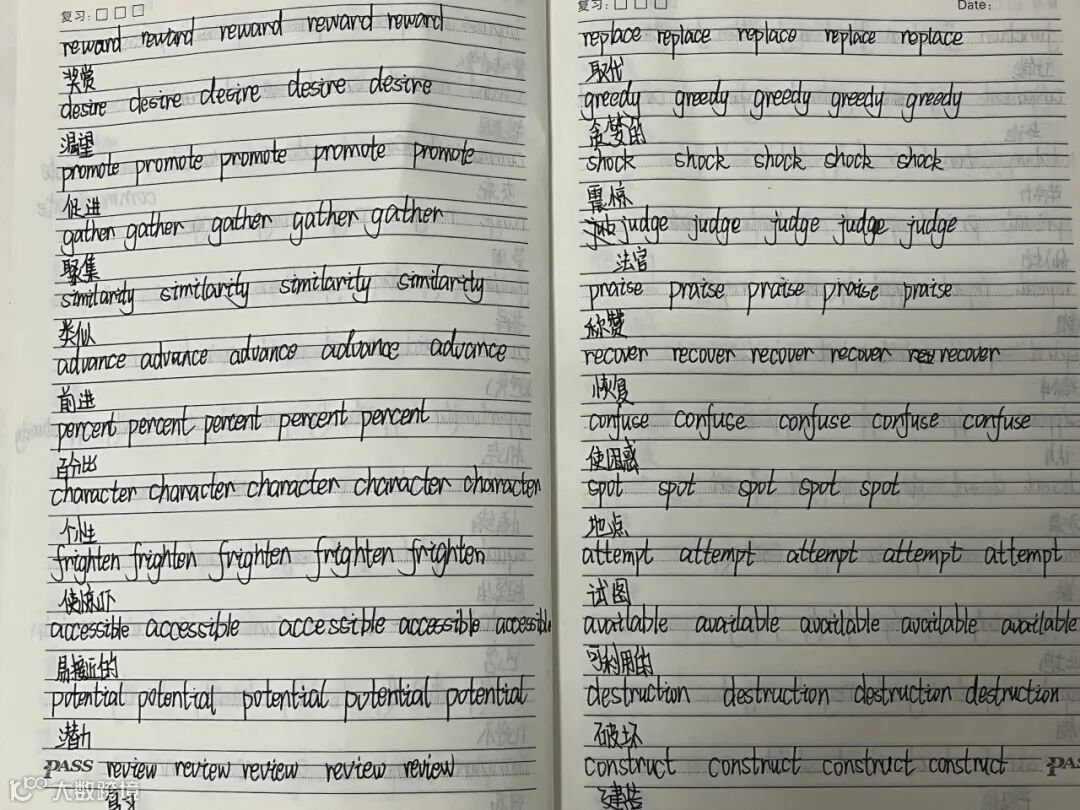 复习：□ □ □
reward reward reward reward reward
奖赏
desire desire desire desire desire
渴望
promote promote promote promote promote
促进
gather gather gather gather gather
聚集
similarity similarity similarity similarity
类似
advance advance advance advance advance
前进
percent percent percent percent percent
百分比
character character character character character
个性
frighten frighten frighten frighten frighten
使惊吓
accessible accessible accessible accessible accessible
易接近的
potential potential potential potential potential
潜力
PASS review review review review review
复习
大数跨境
复习：□ □ □ Date:
replace replace replace replace replace
取代
greedy greedy greedy greedy greedy
贪婪的
shock shock shock shock shock
震惊
judge judge judge judge judge
法官
praise praise praise praise praise
称赞
recover recover recover recover recover
恢复
confuse confuse confuse confuse confuse
使困惑
spot spot spot spot spot
地点
attempt attempt attempt attempt attempt
试图
available available available available available
可利用的
destruction destruction destruction destruction
破坏
construct construct construct construct PAS
建造